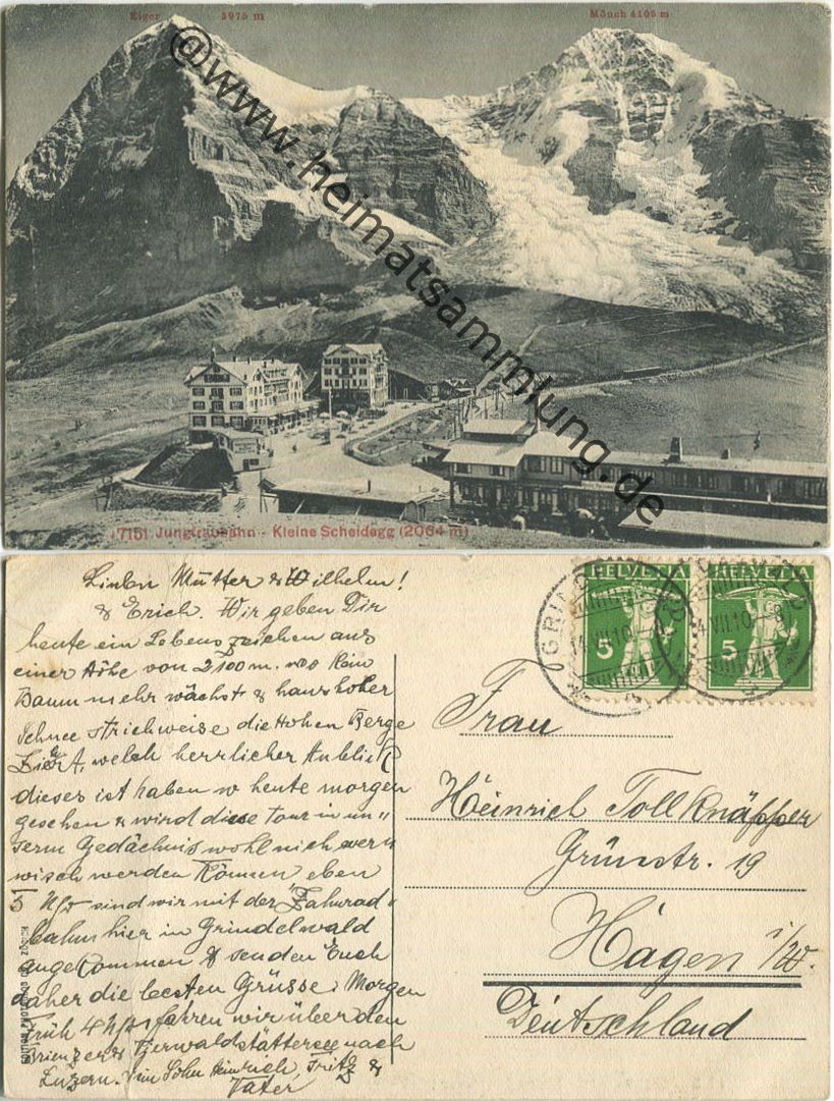 Eiger 3975 m Mönch 4105 m
@www.heimatsammlung.de
7151 Jungfraubahn - Kleine Scheidegg (2064 m)
HELVETIA HELVETIA
5 5
14.VII.10 14.VII.10
Lieben Mutter & Wilhelm!
& Erich. Wir geben Dir
heute ein Lebenszeichen aus
einer Höhe von 2100 m. wo kein
Baum mehr wächst & haushoher
Schnee strichweise die Hohen Berge
welch herrlicher Anblick
dieses ist haben w heute morgen
gesehen & wird diese tour in un"
serm Gedächnis wohl nich
wisch werden Können eben
5 sind wir mit der Zahnrad"
bahn hier in Grindelwald
angekommen & senden Euch
daher die besten Grüsse, Morgen
Früh 4 fahren wir über den
Brienzer & Vierwaldstättersee nach
Luzern. Sohn Heinrich, Fritz &
Vater
Frau
Heinrich Tollknäpper
Grünstr. 19
Hagen i/W.
Deutschland